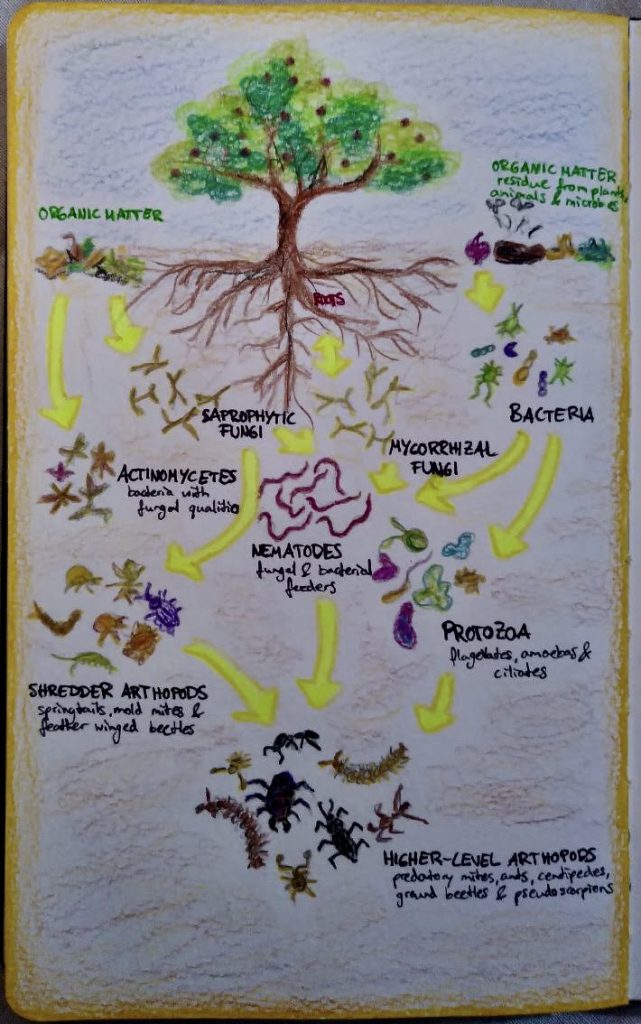 ORGANIC MATTER
residue from plants,
animals & microbes
ORGANIC MATTER
ROOTS
SAPROPHYTIC
FUNGI
BACTERIA
MYCORRHIZAL
FUNGI
ACTINOMYCETES
bacteria with
fungal qualities
NEMATODES
fungal & bacterial
feeders
PROTOZOA
flagellates, amoebas &
ciliates
SHREDDER ARTHOPODS
springtails, mold mites &
feather winged beetles
HIGHER-LEVEL ARTHOPODS
predatory mites, ants, centipedes,
ground beetles & pseudoscorpions